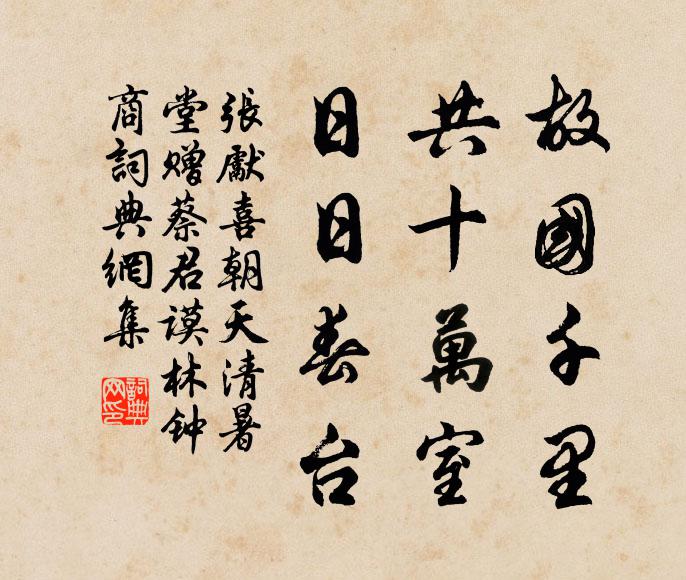 故國千里
共十萬室
日日春台
張獻喜朝天清暑
堂贈蔡君谟林钟
商詞典網集
詞典網印